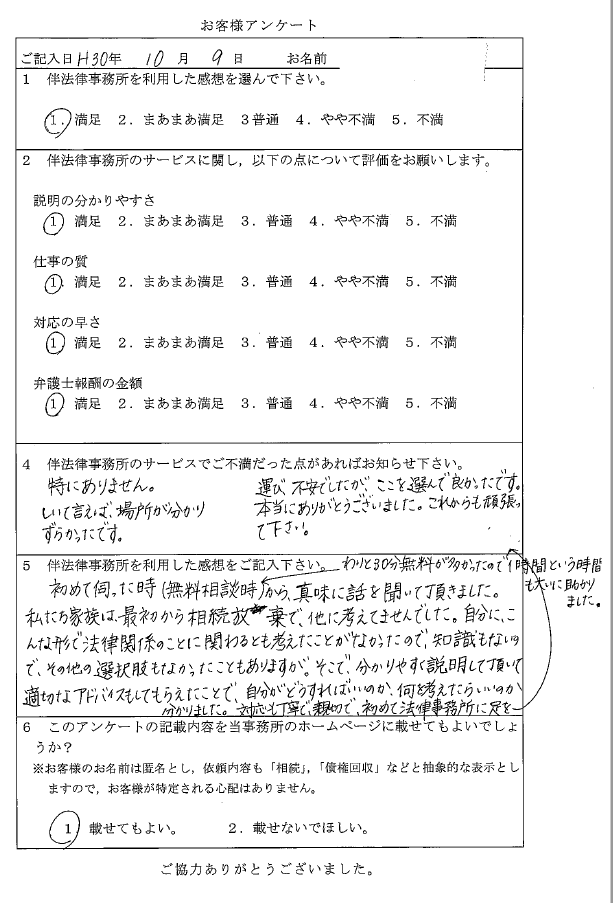 お客様アンケート
ご記入日H30年 10月 9日 お名前
1 伴法律事務所を利用した感想を選んで下さい。
1. 満足 2. まあまあ満足 3普通 4. やや不満 5. 不満
2 伴法律事務所のサービスに関し，以下の点について評価をお願いします。
説明の分かりやすさ
1 満足 2. まあまあ満足 3. 普通 4. やや不満 5. 不満
仕事の質
1. 満足 2. まあまあ満足 3. 普通 4. やや不満 5. 不満
対応の早さ
1 満足 2. まあまあ満足 3. 普通 4. やや不満 5. 不満
弁護士報酬の金額
1 満足 2. まあまあ満足 3. 普通 4. やや不満 5. 不満
4 伴法律事務所のサービスでご不満だった点があればお知らせ下さい。
特にありません。
しいて言えば、場所が分かり
ずらかったです。
5 伴法律事務所を利用した感想をご記入下さい。
わりと30分無料が多かったので1時間という時間
も大いに助かり
ました。
初めて伺った時(無料相談時)から、真味に話を聞いて頂きました。
私たち家族は、最初から相続放棄で、他に考えてませんでした。自分に、こ
んな形で法律関係のことに関わるとも考えたことがなかったので、知識もないの
で、その他の選択肢もなかったこともありますが。そこで、分かりやすく説明して頂いて
適切なアドバイスもしてもらえたことで、自分がどうすればいいのか、何を考えたらいいのか
分かりました。対応も丁寧で、親切で、初めて法律事務所に足を
運び、不安でしたが、ここを選んで良かったです。
本当にありがとうございました。これからも頑張っ
て下さい。
6 このアンケートの記載内容を当事務所のホームページに載せてもよいでしょ
うか？
※お客様のお名前は匿名とし，依頼内容も「相続」，「債権回収」などと抽象的な表示とし
ますので，お客様が特定される心配はありません。
1 載せてもよい。 2. 載せないでほしい。
ご協力ありがとうございました。